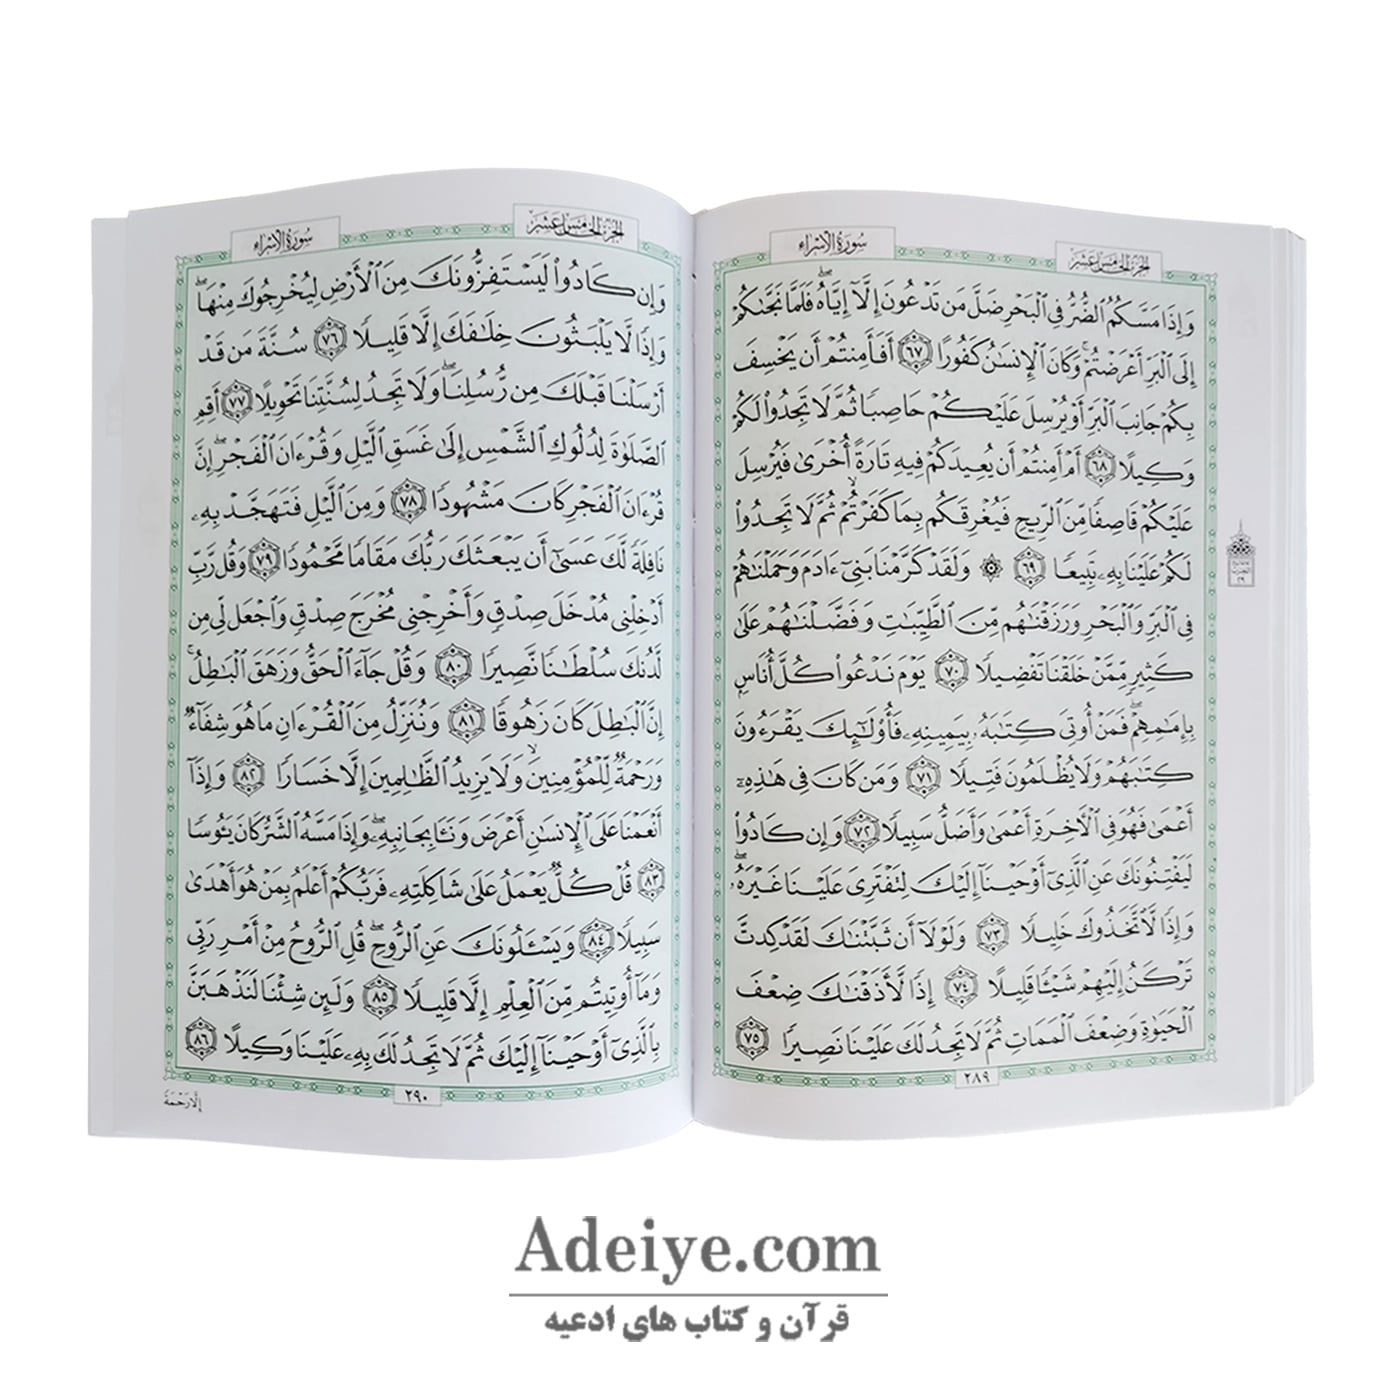 الجزء الخامس عشر
سورة الإسراء
وَإِذَا مَسَّكُمُ ٱلضُّرُّ فِى ٱلْبَحْرِ ضَلَّ مَن تَدْعُونَ إِلَّآ إِيَّاهُ ۖ فَلَمَّا نَجَّىٰكُمْ
إِلَى ٱلْبَرِّ أَعْرَضْتُمْ ۚ وَكَانَ ٱلْإِنسَٰنُ كَفُورًا ﴿٦٧﴾ أَفَأَمِنتُمْ أَن يَخْسِفَ
بِكُمْ جَانِبَ ٱلْبَرِّ أَوْ يُرْسِلَ عَلَيْكُمْ حَاصِبًا ثُمَّ لَا تَجِدُوا۟ لَكُمْ
وَكِيلًا ﴿٦٨﴾ أَمْ أَمِنتُمْ أَن يُعِيدَكُمْ فِيهِ تَارَةً أُخْرَىٰ فَيُرْسِلَ
عَلَيْكُمْ قَاصِفًا مِّنَ ٱلرِّيحِ فَيُغْرِقَكُم بِمَا كَفَرْتُمْ ۙ ثُمَّ لَا تَجِدُوا۟
لَكُمْ عَلَيْنَا بِهِۦ تَبِيعًا ﴿٦٩﴾ ۞ وَلَقَدْ كَرَّمْنَا بَنِىٓ ءَادَمَ وَحَمَلْنَٰهُمْ
فِى ٱلْبَرِّ وَٱلْبَحْرِ وَرَزَقْنَٰهُم مِّنَ ٱلطَّيِّبَٰتِ وَفَضَّلْنَٰهُمْ عَلَىٰ
كَثِيرٍ مِّمَّنْ خَلَقْنَا تَفْضِيلًا ﴿٧٠﴾ يَوْمَ نَدْعُوا۟ كُلَّ أُنَاسٍ
بِإِمَٰمِهِمْ ۖ فَمَنْ أُوتِىَ كِتَٰبَهُۥ بِيَمِينِهِۦ فَأُو۟لَٰٓئِكَ يَقْرَءُونَ
كِتَٰبَهُمْ وَلَا يُظْلَمُونَ فَتِيلًا ﴿٧١﴾ وَمَن كَانَ فِى هَٰذِهِۦٓ
أَعْمَىٰ فَهُوَ فِى ٱلْءَاخِرَةِ أَعْمَىٰ وَأَضَلُّ سَبِيلًا ﴿٧٢﴾ وَإِن كَادُوا۟
لَيَفْتِنُونَكَ عَنِ ٱلَّذِىٓ أَوْحَيْنَآ إِلَيْكَ لِتَفْتَرِىَ عَلَيْنَا غَيْرَهُۥ ۖ
وَإِذًا لَّٱتَّخَذُوكَ خَلِيلًا ﴿٧٣﴾ وَلَوْلَآ أَن ثَبَّتْنَٰكَ لَقَدْ كِدتَّ
تَرْكَنُ إِلَيْهِمْ شَيْـًٔا قَلِيلًا ﴿٧٤﴾ إِذًا لَّأَذَقْنَٰكَ ضِعْفَ
ٱلْحَيَوٰةِ وَضِعْفَ ٱلْمَمَاتِ ثُمَّ لَا تَجِدُ لَكَ عَلَيْنَا نَصِيرًا ﴿٧٥﴾
٢٨٩
الجزء الخامس عشر
سورة الإسراء
وَإِن كَادُوا۟ لَيَسْتَفِزُّونَكَ مِنَ ٱلْأَرْضِ لِيُخْرِجُوكَ مِنْهَا ۖ
وَإِذًا لَّا يَلْبَثُونَ خِلَٰفَكَ إِلَّا قَلِيلًا ﴿٧٦﴾ سُنَّةَ مَن قَدْ
أَرْسَلْنَا قَبْلَكَ مِن رُّسُلِنَا ۖ وَلَا تَجِدُ لِسُنَّتِنَا تَحْوِيلًا ﴿٧٧﴾ أَقِمِ
ٱلصَّلَوٰةَ لِدُلُوكِ ٱلشَّمْسِ إِلَىٰ غَسَقِ ٱلَّيْلِ وَقُرْءَانَ ٱلْفَجْرِ ۖ إِنَّ
قُرْءَانَ ٱلْفَجْرِ كَانَ مَشْهُودًا ﴿٧٨﴾ وَمِنَ ٱلَّيْلِ فَتَهَجَّدْ بِهِۦ
نَافِلَةً لَّكَ عَسَىٰٓ أَن يَبْعَثَكَ رَبُّكَ مَقَامًا مَّحْمُودًا ﴿٧٩﴾ وَقُل رَّبِّ
أَدْخِلْنِى مُدْخَلَ صِدْقٍ وَأَخْرِجْنِى مُخْرَجَ صِدْقٍ وَٱجْعَل لِّى مِن
لَّدُنكَ سُلْطَٰنًا نَّصِيرًا ﴿٨٠﴾ وَقُلْ جَآءَ ٱلْحَقُّ وَزَهَقَ ٱلْبَٰطِلُ ۚ
إِنَّ ٱلْبَٰطِلَ كَانَ زَهُوقًا ﴿٨١﴾ وَنُنَزِّلُ مِنَ ٱلْقُرْءَانِ مَا هُوَ شِفَآءٌ
وَرَحْمَةٌ لِّلْمُؤْمِنِينَ ۙ وَلَا يَزِيدُ ٱلظَّٰلِمِينَ إِلَّا خَسَارًا ﴿٨٢﴾ وَإِذَآ
أَنْعَمْنَا عَلَى ٱلْإِنسَٰنِ أَعْرَضَ وَنَـَٔا بِجَانِبِهِۦ ۖ وَإِذَا مَسَّهُ ٱلشَّرُّ كَانَ يَـُٔوسًا
﴿٨٣﴾ قُلْ كُلٌّ يَعْمَلُ عَلَىٰ شَاكِلَتِهِۦ فَرَبُّكُمْ أَعْلَمُ بِمَنْ هُوَ أَهْدَىٰ
سَبِيلًا ﴿٨٤﴾ وَيَسْـَٔلُونَكَ عَنِ ٱلرُّوحِ ۖ قُلِ ٱلرُّوحُ مِنْ أَمْرِ رَبِّى
وَمَآ أُوتِيتُم مِّنَ ٱلْعِلْمِ إِلَّا قَلِيلًا ﴿٨٥﴾ وَلَئِن شِئْنَا لَنَذْهَبَنَّ
بِٱلَّذِىٓ أَوْحَيْنَآ إِلَيْكَ ثُمَّ لَا تَجِدُ لَكَ بِهِۦ عَلَيْنَا وَكِيلًا ﴿٨٦﴾
٢٩٠
إِلَّا رَحْمَةً
Adeiye.com
قرآن و کتاب های ادعیه